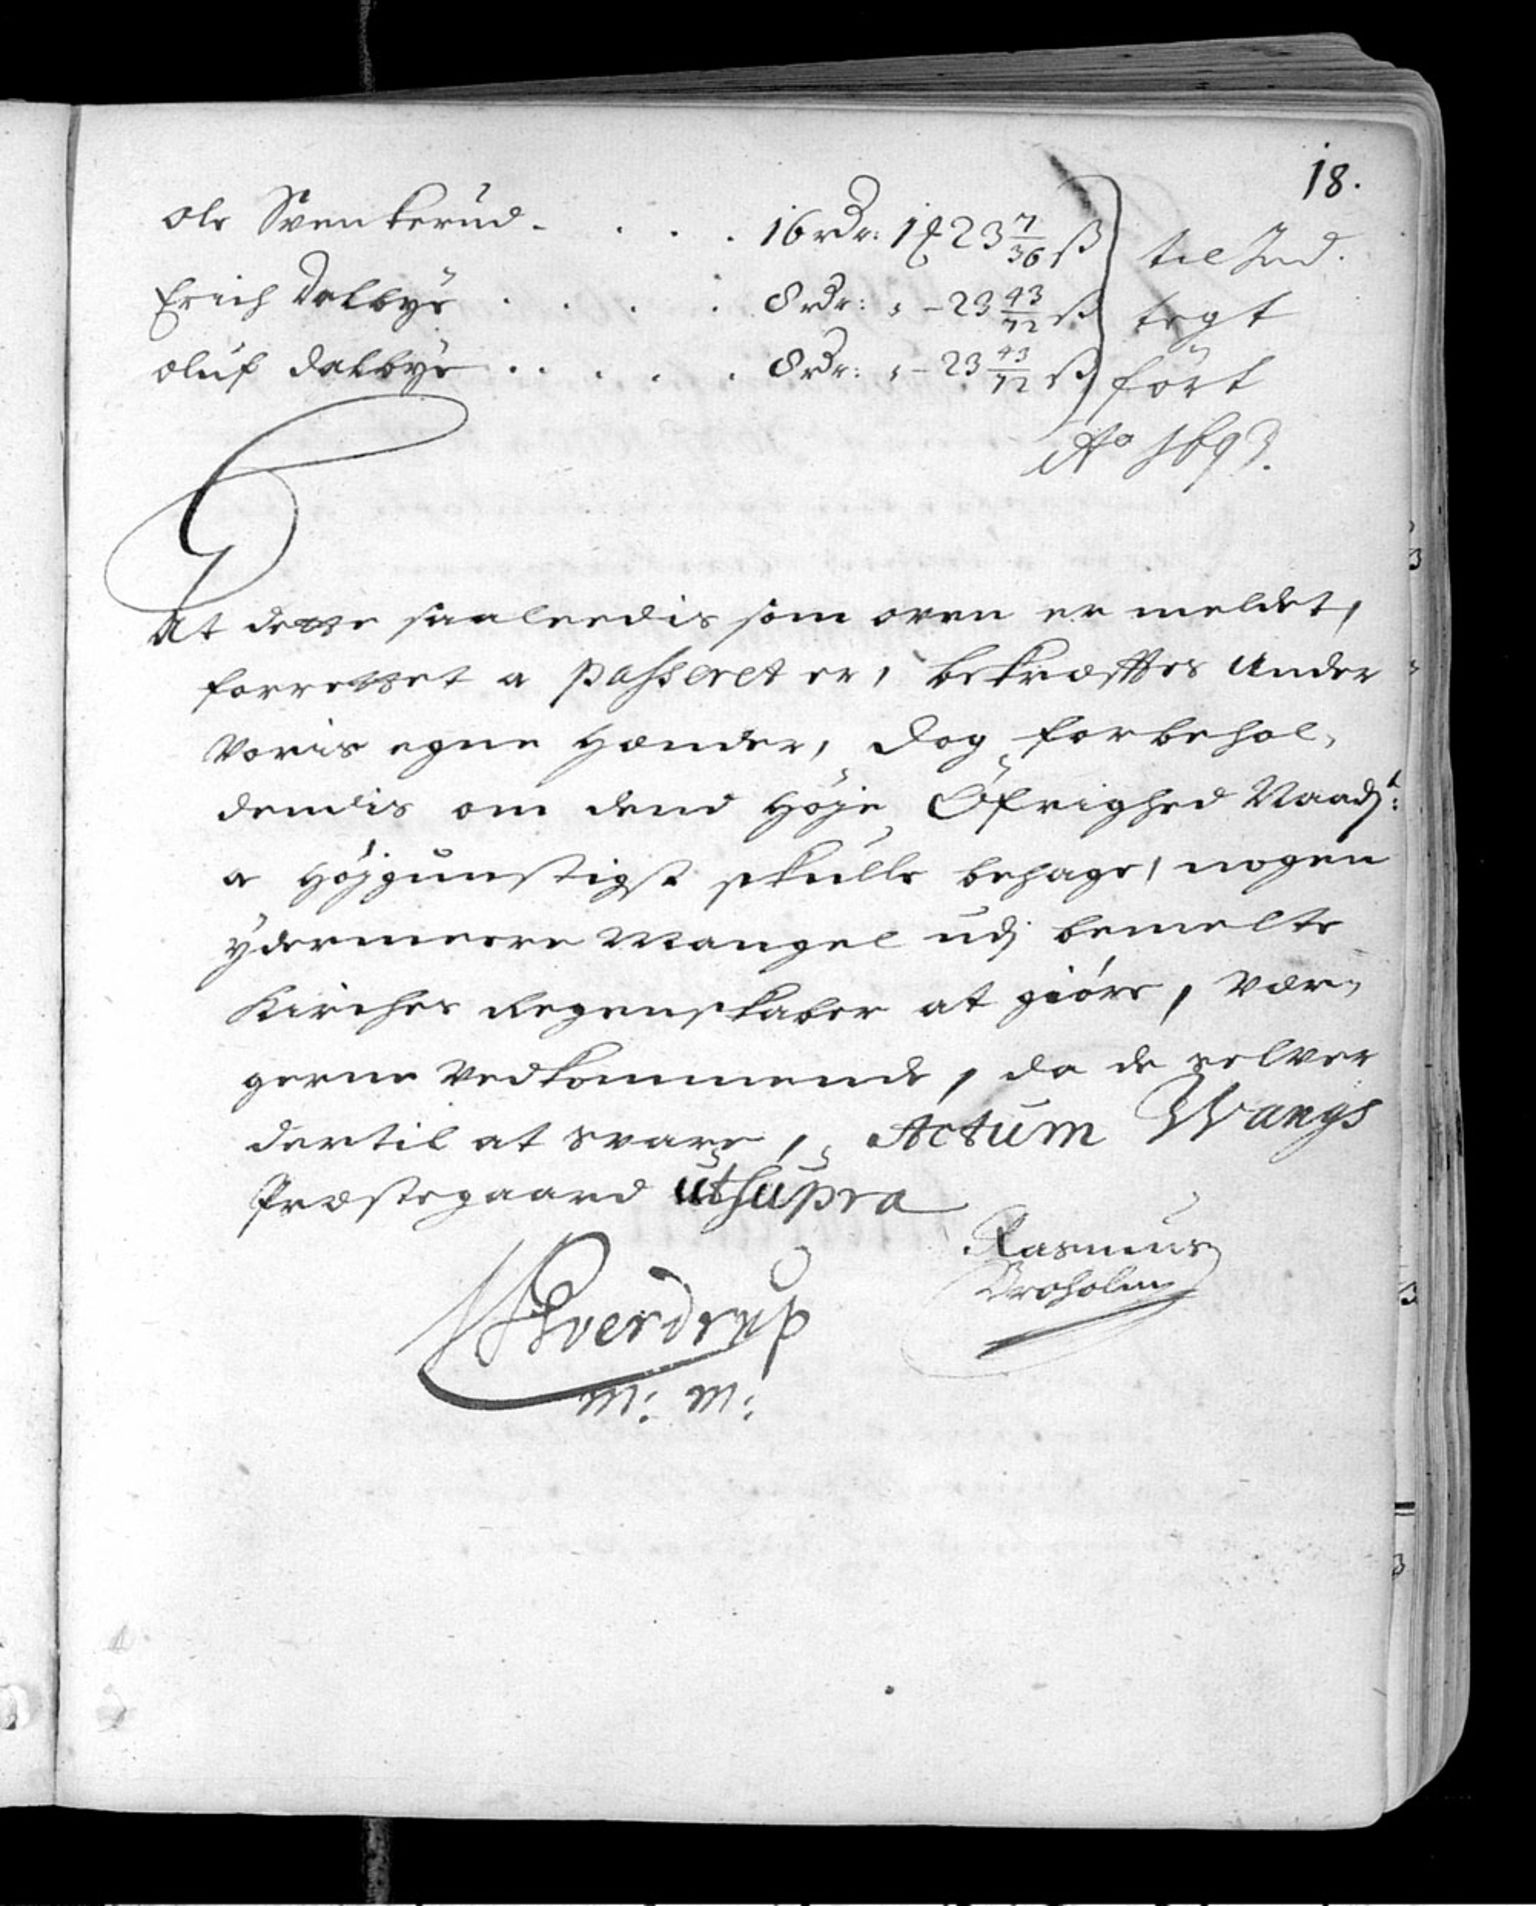 18.
Ole Svenkerud - . . . 16 rdr: 1 ℔ 23 7/36 ß
Erich Dalbye . . . . 8 rdr: , - 23 43/72 ß
Oluf Dalbye . . . . . 8 rdr: , - 23 43/72 ß
til Ind.
tegt
fört
Ao 1693.
At dette saaleedis som oven er meldet,
forrettet a passeret er, bekræfftes under
Voris egne Hænder, Dog forbehol,
dendis om dend Høje Øfrighed Naadst:
a Højgunstigst skulle behage, nogen
ydermeere Mangel udj bemelte
Kirches Regenskaber at giöre, Vær,
gerne Vedkommende, da de selver
dertil at svare, Actum Wangs
Præstegaard ut supra
Sverdrup
m: m:
Rasmus
Broholm